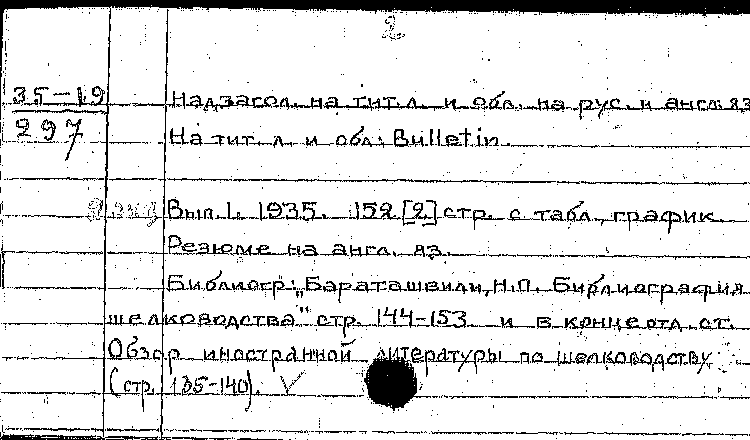 2
35-19
297
Надзагол. на тит. л. и обл. на рус. и англ. яз
На тит. л. и обл.: Bulletin.
Вып. 1. 1935. 152 [2] стр. с табл., график.
Резюме на англ. яз.
Библиогр: "Бараташвили, Н.П. Библиография
шелководства" стр. 144-153 и в конце отл. ст.
Обзор иностранной литературы по шелководству
(стр. 135-140).